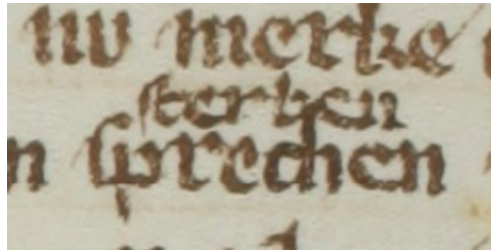 nv merke
sterben
n sprechen